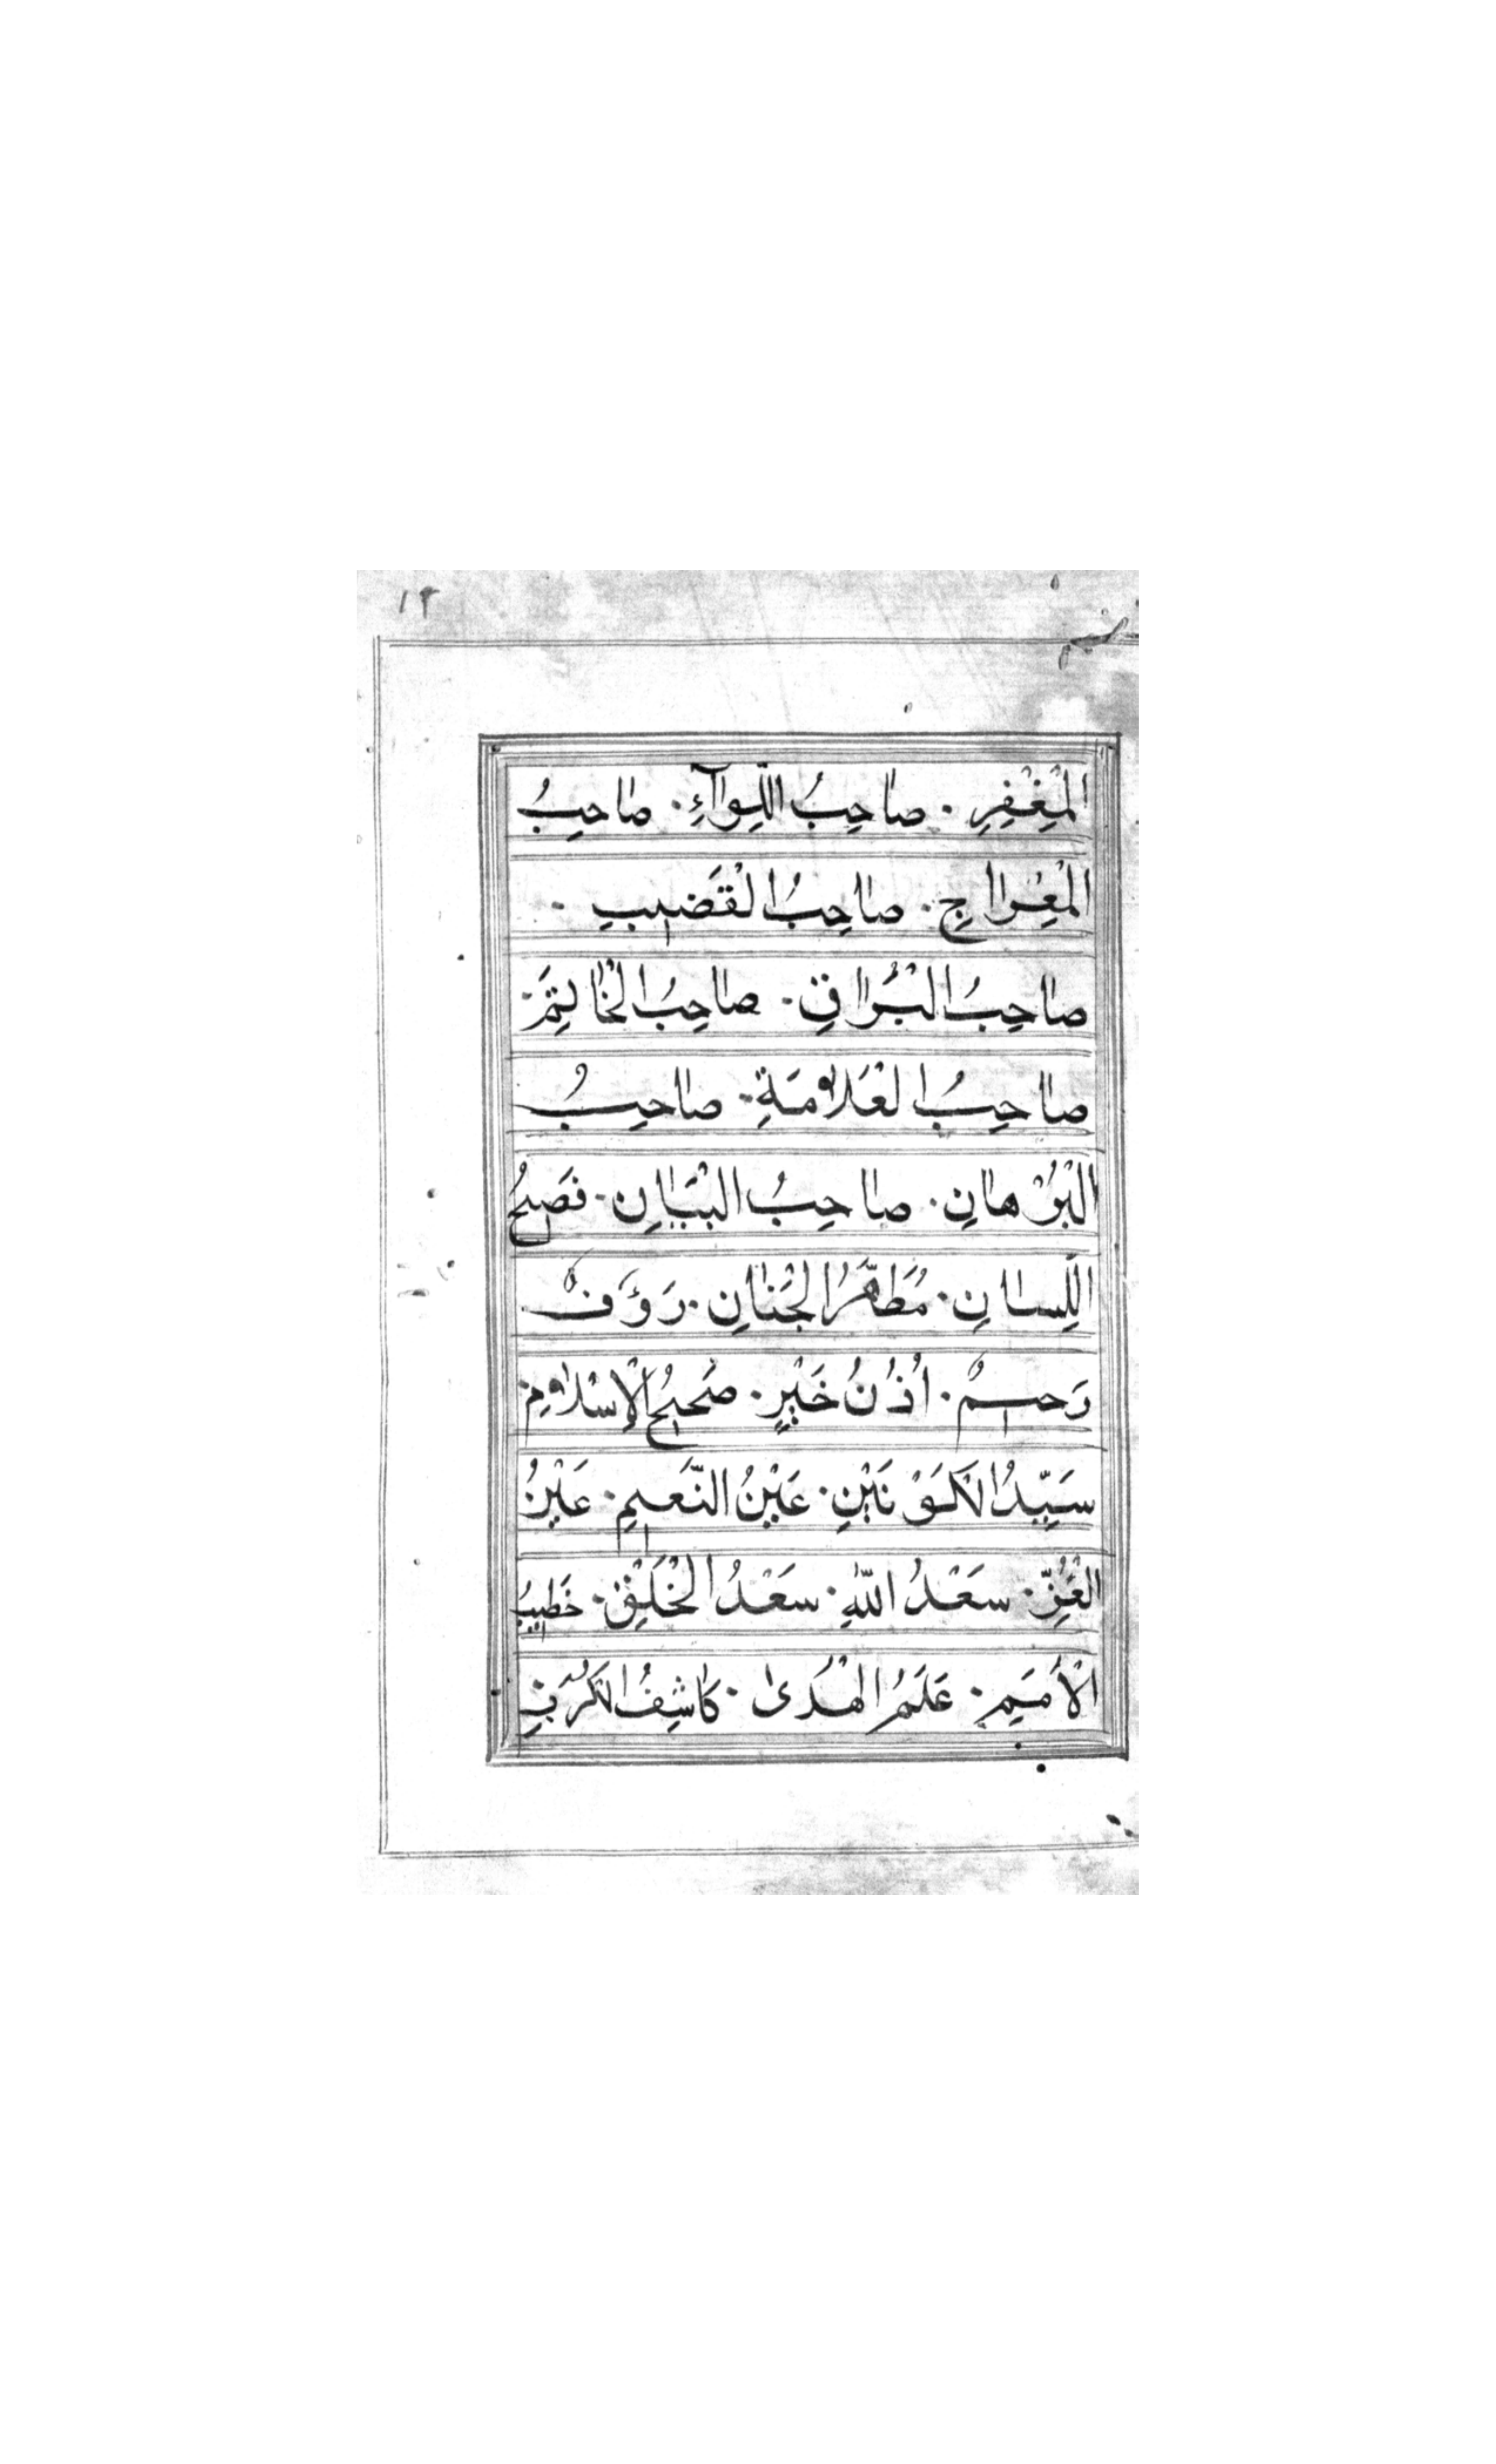 ١٣
الْمِغْفَرِ. صَاحِبُ اللِّوَآءِ. صَاحِبُ
الْمِعْرَاجِ. صَاحِبُ الْقَضِيبِ.
صَاحِبُ الْبُرَاقِ. صَاحِبُ الْخَاتِمَ.
صَاحِبُ الْعَلَامَةِ. صَاحِبُ
الْبُرْهَانِ. صَاحِبُ الْبَيَانِ. فَصِيحُ
اللِّسَانِ. مُطَهَّرُ الْجَنَانِ. رَؤُفٌ
رَحِيمٌ. أُذُنُ خَيْرٍ. صَحِيحُ الْإِسْلَامِ.
سَيِّدُ الْكَوْنَيْنِ. عَيْنُ النَّعِيمِ. عَيْنُ
الْعِزِّ. سَعْدُ اللّٰهِ. سَعْدُ الْخَلْقِ. خَطِيبُ
الْأُمَمِ. عَلَمُ الْهُدَىٰ. كَاشِفُ الْكُرَبِ